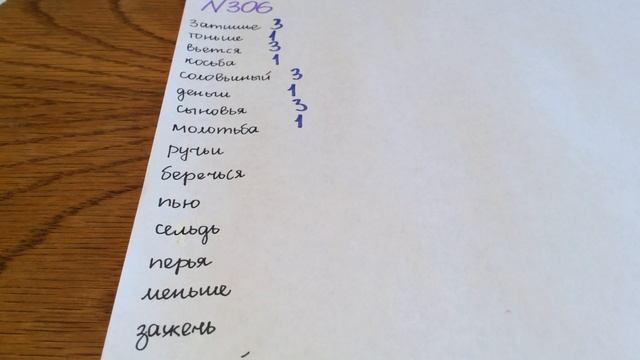 N306
Затишье 3
тоньше 1
вьется 3
косьба 1
соловьиный 3
деньги 1
сыновья 3
молотьба 1
ручьи
беречься
пью
сельдь
перья
меньше
зажечь